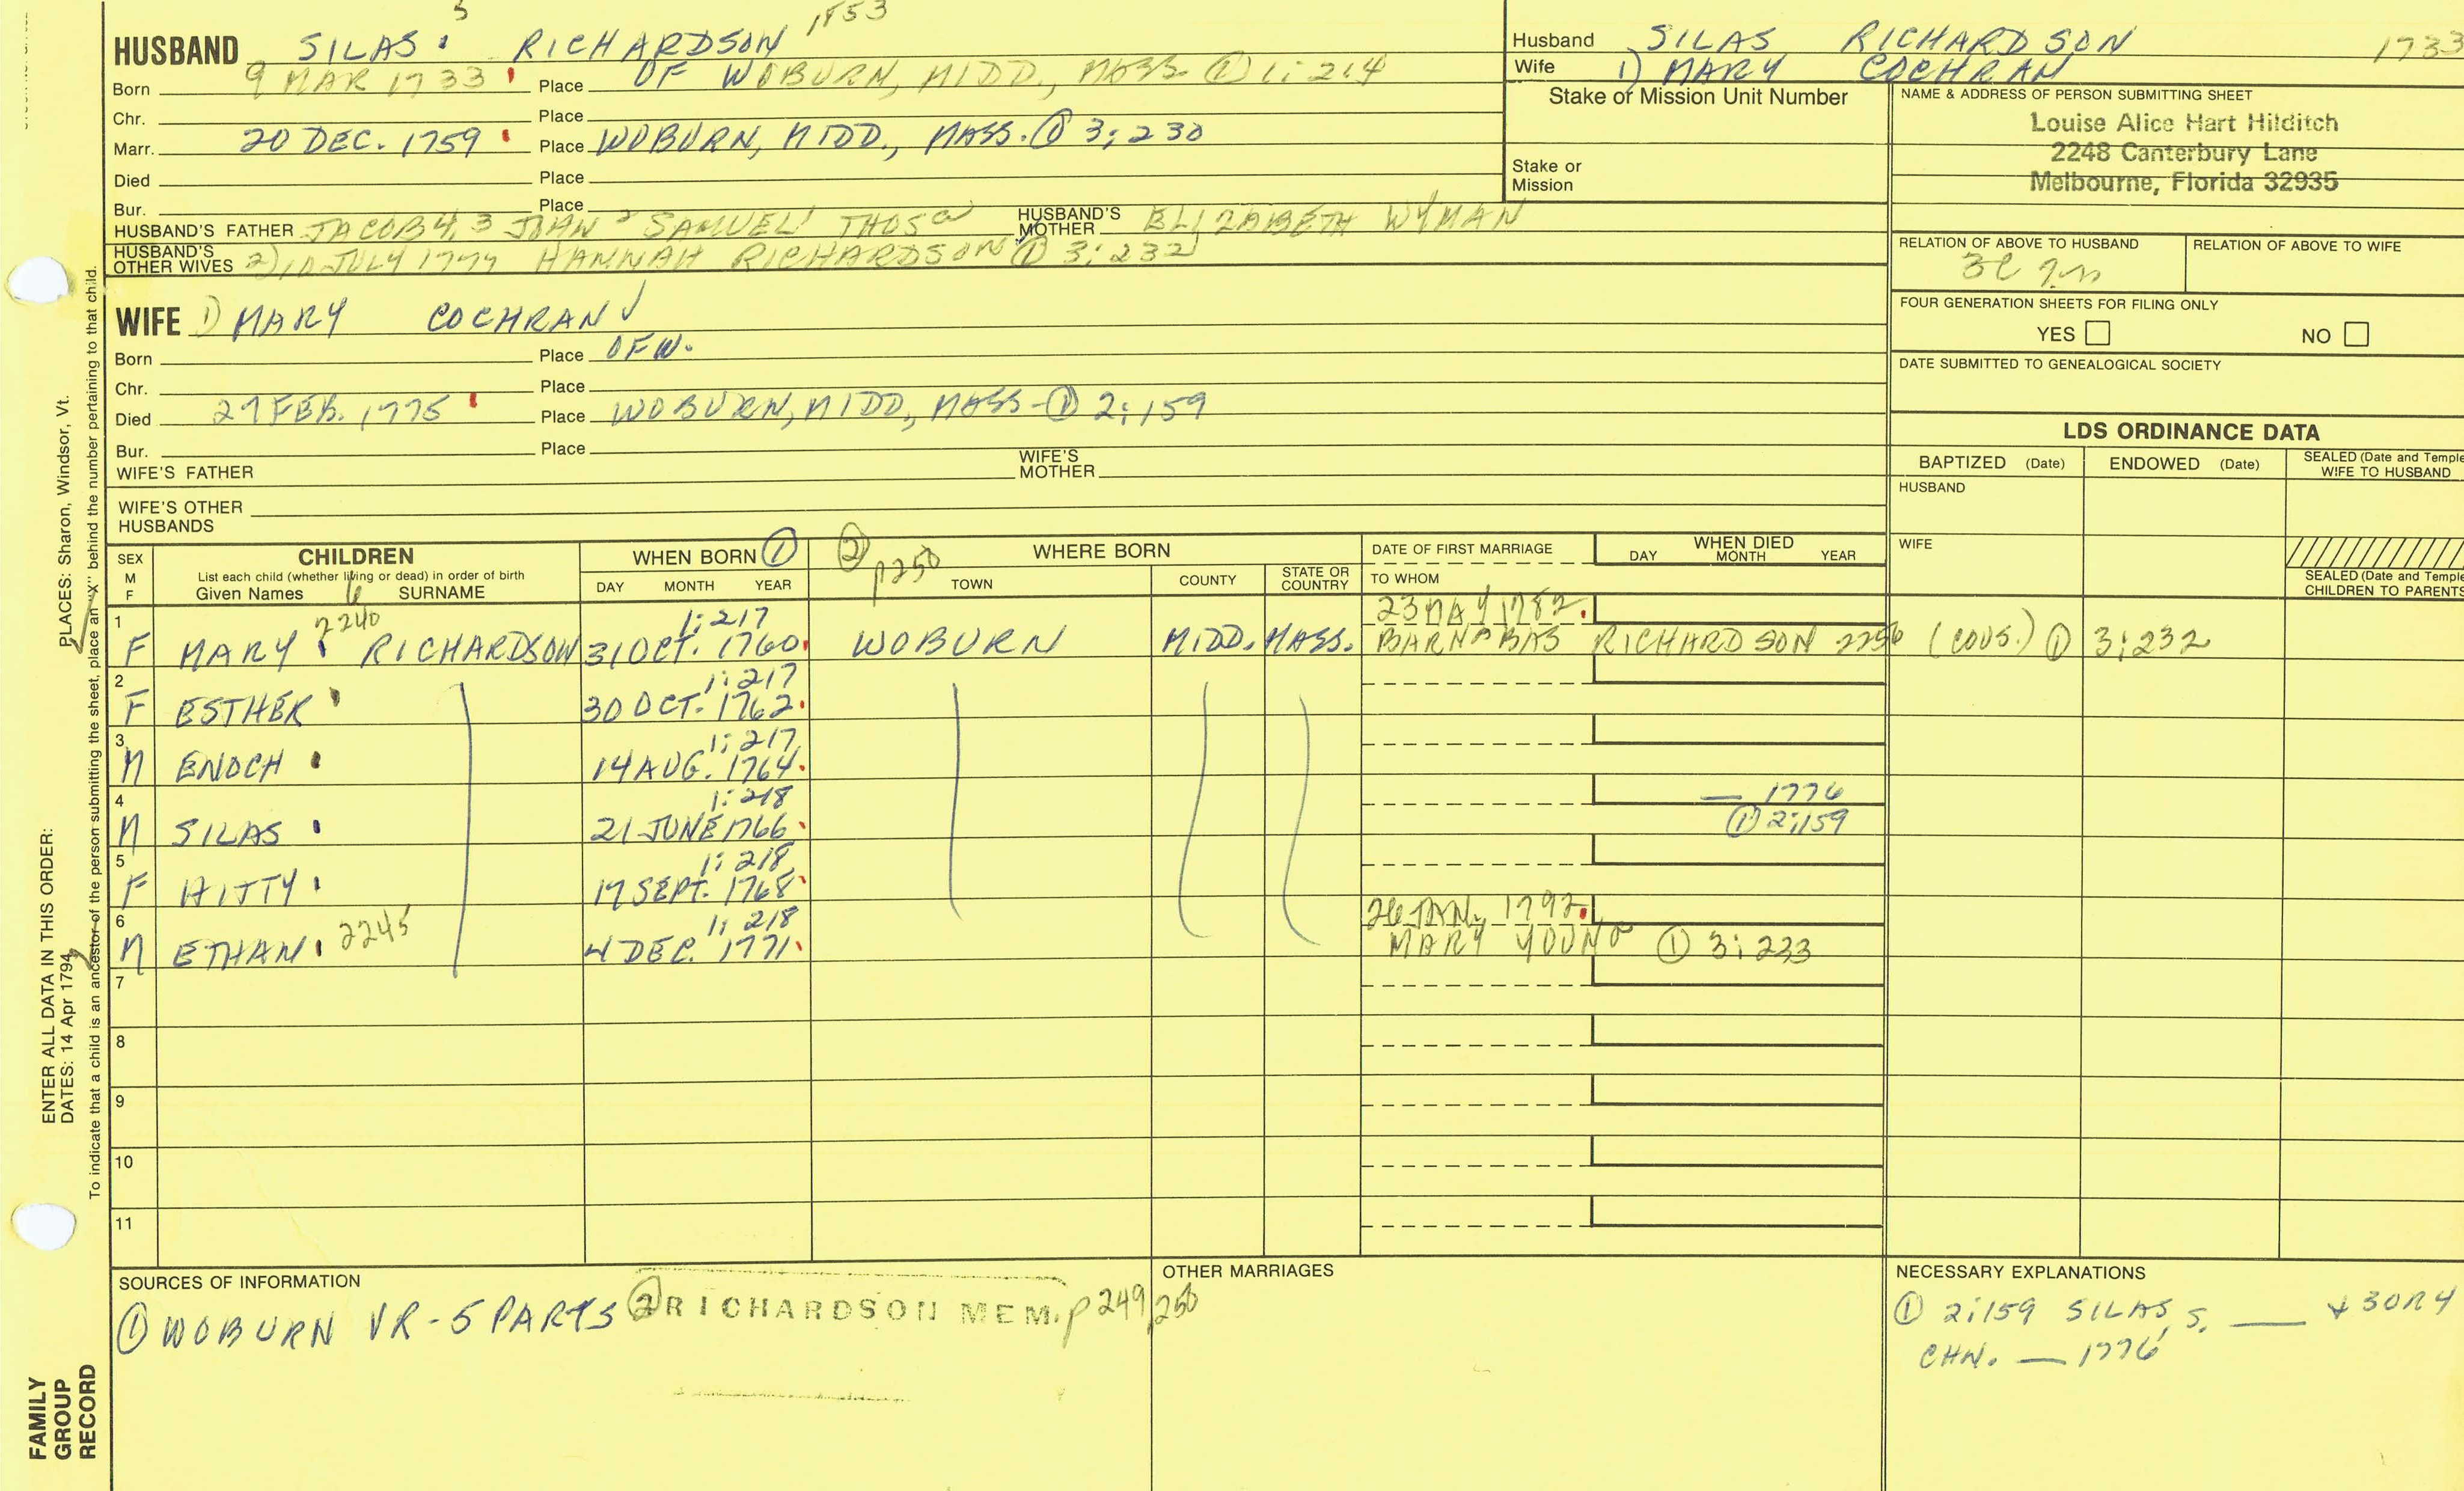 5 1853
HUSBAND SILAS RICHARDSON
Born 9 MAR 1733 Place OF WOBURN, MIDD., MASS. ① 1:214
Chr. Place
Marr. 20 DEC. 1759 Place WOBURN, MIDD., MASS. ① 3:230
Died Place
Bur. Place
HUSBAND'S FATHER JACOB 4, 3 JOHN 2 SAMUEL 1 THOS HUSBAND'S MOTHER ELIZABETH WYMAN
HUSBAND'S OTHER WIVES 2) JULY 1777 HANNAH RICHARDSON ① 3:232
WIFE 1) MARY COCHRAN
Born Place OF W.
Chr. Place
Died 27 FEB. 1775 Place WOBURN, MIDD, MASS - ① 2:159
Bur. Place
WIFE'S FATHER WIFE'S MOTHER
WIFE'S OTHER HUSBANDS
Husband SILAS RICHARDSON 1733
Wife 1) MARY COCHRAN
Stake or Mission Unit Number
Stake or Mission
NAME & ADDRESS OF PERSON SUBMITTING SHEET
Louise Alice Hart Hilditch
2248 Canterbury Lane
Melbourne, Florida 32935
RELATION OF ABOVE TO HUSBAND RELATION OF ABOVE TO WIFE
FOUR GENERATION SHEETS FOR FILING ONLY
YES NO
DATE SUBMITTED TO GENEALOGICAL SOCIETY
LDS ORDINANCE DATA
BAPTIZED (Date) ENDOWED (Date) SEALED (Date and Temple) WIFE TO HUSBAND
HUSBAND
WIFE
SEALED (Date and Temple) CHILDREN TO PARENTS
SEX M F
CHILDREN
List each child (whether living or dead) in order of birth
Given Names 6 SURNAME
WHEN BORN ①
DAY MONTH YEAR
② p250 WHERE BORN
TOWN COUNTY STATE OR COUNTRY
DATE OF FIRST MARRIAGE
TO WHOM
WHEN DIED
DAY MONTH YEAR
1 2240 1:217 23 MAY 1782.
F MARY RICHARDSON 31 OCT. 1760 WOBURN MIDD. MASS. BARNABAS RICHARDSON 2256 (COUS.) ① 3:232
2 1:217
F ESTHER 30 OCT. 1762
3 1:217
M ENOCH 14 AUG. 1764
4 1:218 — 1776
M SILAS 21 JUNE 1766 ① 2:159
5 1:218
F HITTY 17 SEPT. 1768
6 1:218 26 JAN. 1792
M ETHAN 2245 4 DEC. 1771 MARY YOUNG ① 3:233
7
8
9
10
11
SOURCES OF INFORMATION
① WOBURN VR - 5 PARTS ② RICHARDSON MEM. p 249, 250
OTHER MARRIAGES
NECESSARY EXPLANATIONS
① 2:159 SILAS, S. —
CHN. — 1776
PLACES: Sharon, Windsor, Vt.
To indicate that a child is an ancestor of the person submitting the sheet, place an "X" behind the number pertaining to that child.
ENTER ALL DATA IN THIS ORDER:
DATES: 14 Apr 1794
FAMILY
GROUP
RECORD